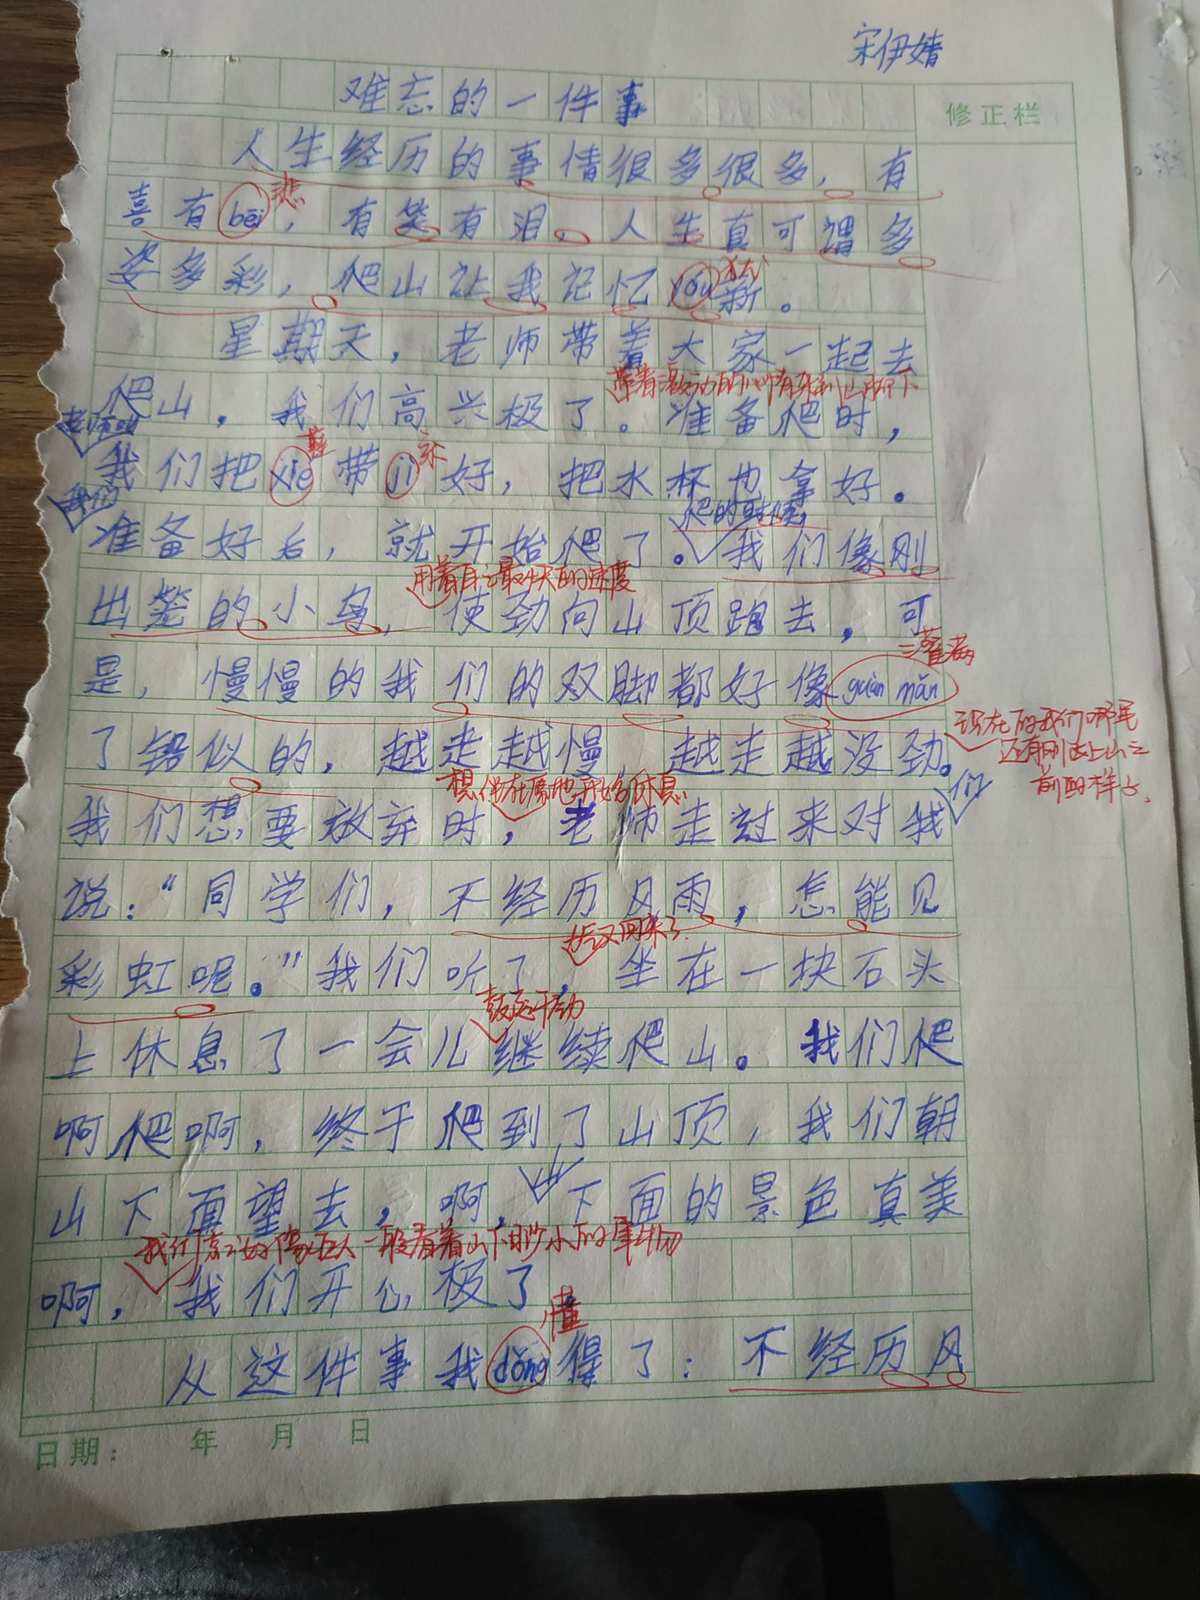 宋伊婧
难忘的一件事
修正栏
人生经历的事情很多很多，有
悲
喜有bēi，有笑有泪。人生真可谓多
犹
姿多彩，爬山让我记忆yóu新。
星期天，老师带着大家一起去
爬山，我们高兴极了。准备爬时，
老师叫
鞋
我们把xié带jì好，把水杯也拿好。
我们
爬的时候，
准备好后，就开始爬了。我们像刚
用着自己最大的速度
出笼的小鸟，使劲向山顶跑去，可
灌满
是，慢慢的我们的双脚都好像guàn mǎn
现在的我们哪里
了铅似的，越走越慢，越走越没劲。
们
我们想要放弃时，老师走过来对我
说：“同学们，不经历风雨，怎能见
彩虹呢。”我们听了，坐在一块石头
上休息了一会儿继续爬山。我们爬
啊爬啊，终于爬到了山顶，我们朝
山
山下面望去，啊，下面的景色真美
我们就好像巨人一般看着山下渺小的事物
啊，我们开心极了
懂
从这件事我dǒng得了：不经历风
日期： 年 月 日